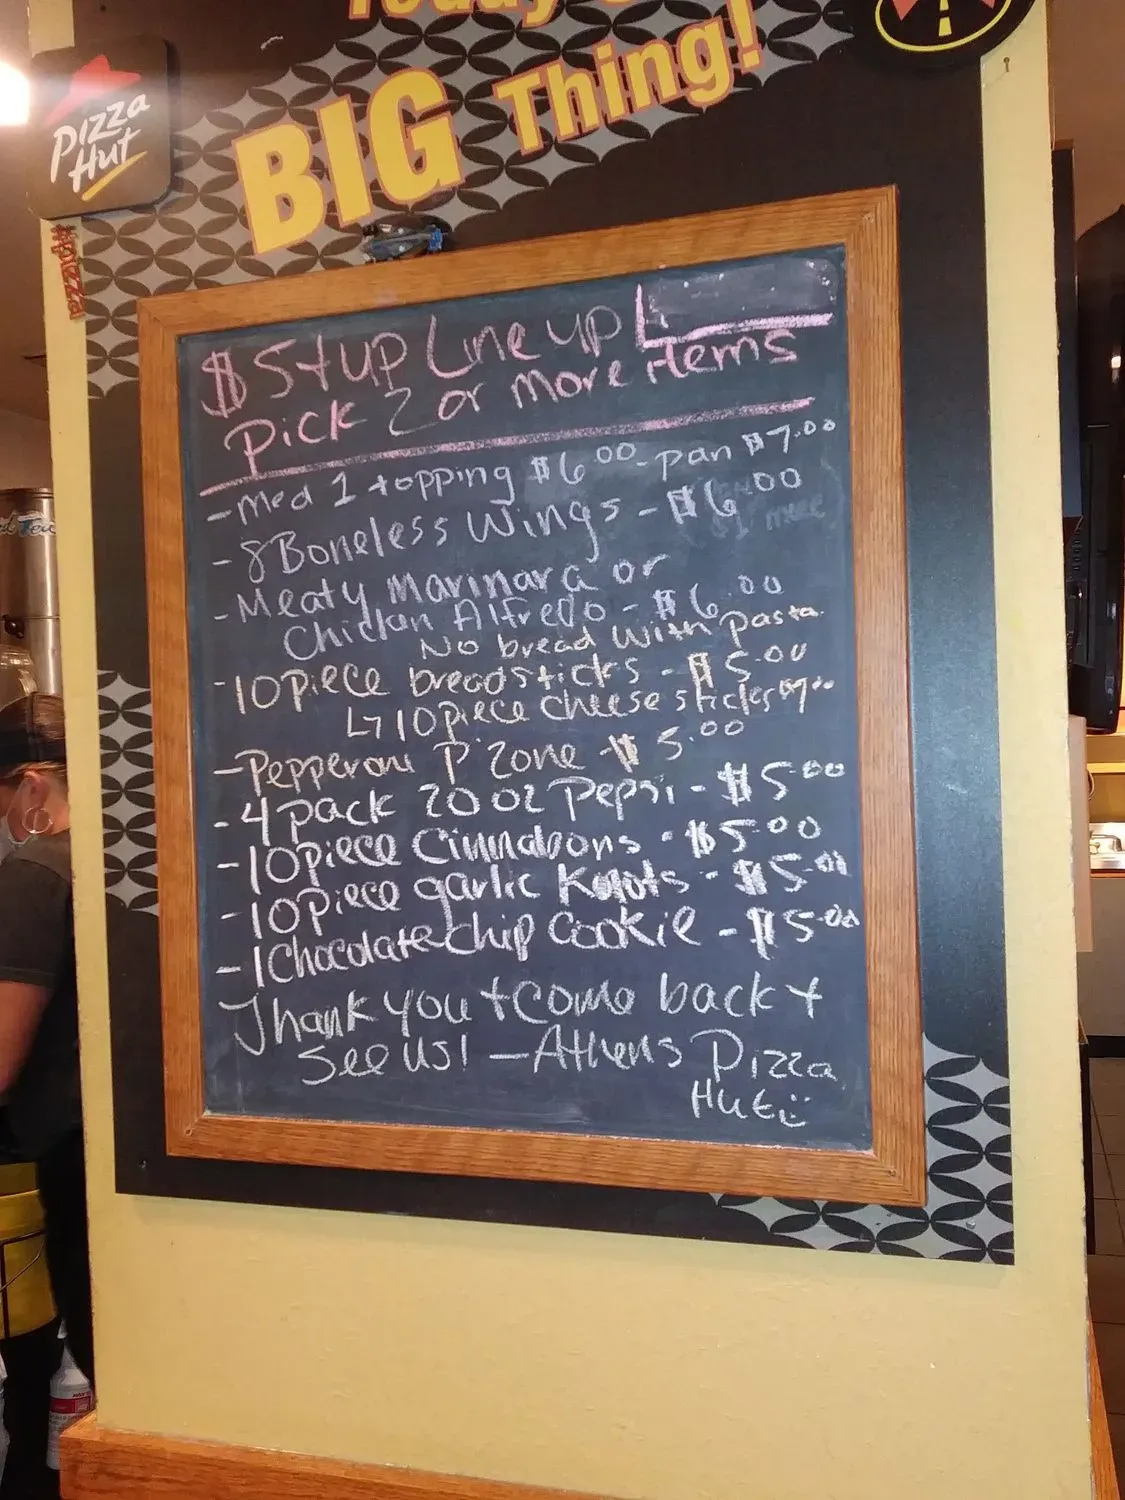 Today's
BIG Thing!
Pizza
Hut
#pizza
$5+up Line up
Pick 2 or more items
-Med 1 topping $6.00-pan $7.00
-8 Boneless Wings - $6.00
-Meaty Marinara or
Chicken Alfredo - $6.00
No bread with pasta.
-10 Piece breadsticks - $5.00
↳10piece cheese sticks $7.00
-Pepperoni P'Zone - $5.00
-4 pack 20 oz Pepsi - $5.00
-10piece Cinnabons - $5.00
-10Piece garlic Knots - $5.00
-1 Chocolate chip Cookie - $5.00
Thank you + come back +
See us! - Athens Pizza
Hut